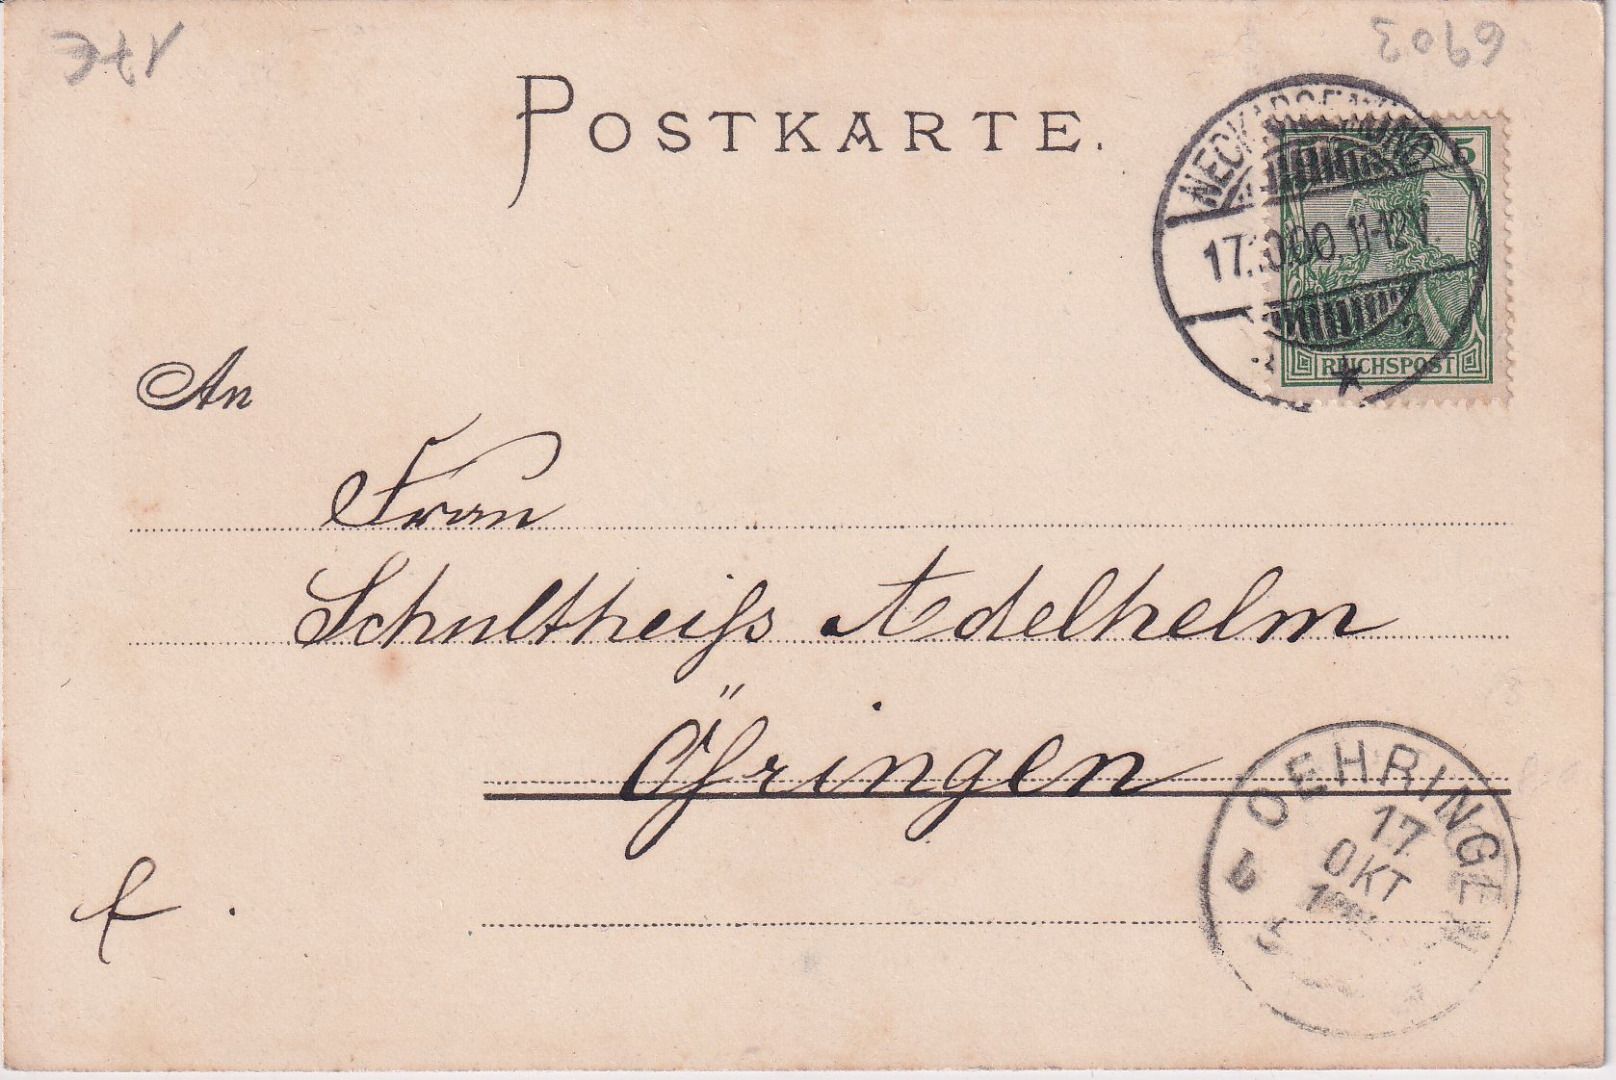 6903
POSTKARTE.
NECKARGEMÜND
5
17.10.00. 11-12V.
REICHSPOST
An
Frau
Schultheiß Adelhelm
Öhringen
OEHRINGEN
17
OKT
f.